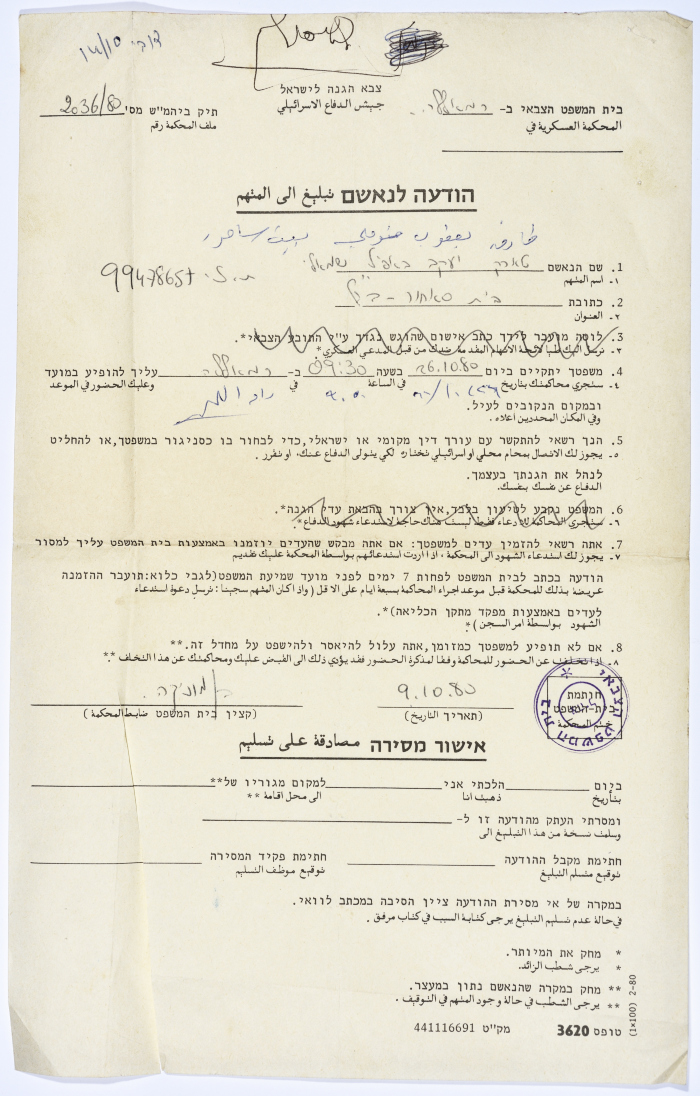 דובי 14/10
צבא הגנה לישראל
جيش الدفاع الاسرائيلي
בית המשפט הצבאי ב- רמאללה
المحكمة العسكرية في
תיק ביהמ"ש מס' 2036/80
ملف المحكمة رقم
הודעה לנאשם تبليغ الى المتهم
طارق يعقوب بيت ساحور
1. שם הנאשם טארק יעקב
١- اسم المتهم
ת.ז. 99478657
2. כתובת בית סאחור
٢- العنوان
3. לוטה מועבר לידך כתב אישום שהוגש כנגדך ע"י התובע הצבאי*.
٣- نرسل اليك طيا لائحة الاتهام المقدمة ضدك من قبل المدعي العسكري*
4. משפטך יתקיים ביום 26.10.80 בשעה 09:30 ב- רמאללה עליך להופיע במועד
٤- ستجري محاكمتك بتاريخ في الساعة في وعليك الحضور في الموعد
ובמקום הנקובים לעיל.
وفي المكان المحددين اعلاه.
5. הנך רשאי להתקשר עם עורך דין מקומי או ישראלי,כדי לבחור בו כסניגור במשפטך,או להחליט
٥- يجوز لك الاتصال بمحام محلي او اسرائيلي تختاره لكي يتولى الدفاع عنك، او تقرر
לנהל את הגנתך בעצמך.
الدفاع عن نفسك بنفسك.
6. המשפט נקבע לטיעון בלבד,אין צורך בהבאת עדי הגנה*.
٦- ستجري المحاكمة للادعاء فقط ليست هناك حاجة لاستدعاء شهود الدفاع*.
7. אתה רשאי להזמין עדים למשפטך: אם אתה מבקש שהעדים יוזמנו באמצעות בית המשפט עליך למסור
٧- يجوز لك استدعاء الشهود الى المحكمة، اذا اردت استدعائهم بواسطة المحكمة عليك تقديم
הודעה בכתב לבית המשפט לפחות 7 ימים לפני מועד שמיעת המשפט(לגבי כלוא:תועבר ההזמנה
عريضة بذلك للمحكمة قبل موعد اجراء المحاكمة بسبعة ايام على الاقل (واذا كان المتهم سجينا: نرسل دعوة استدعاء
לעדים באמצעות מפקד מתקן הכליאה)*.
الشهود بواسطة امر السجن)*
8. אם לא תופיע למשפטך כמזומן,אתה עלול להיאסר ולהישפט על מחדל זה.**
٨- اذا تخلفت عن الحضور للمحاكمة وفقا لمذكرة الحضور فقد يؤدي ذلك الى القبض عليك ومحاكمتك عن هذا التخلف **.
9.10.80
(תאריך التاريخ)
(קצין בית המשפט ضابط المحكمة)
חותמת
בית-המשפט
ختم المحكمة
בית המשפט הצבאי
אישור מסירה مصادقة على تسليم
ביום הלכתי אני למקום מגוריו של**
بتاريخ ذهبت انا الى محل اقامة **
ומסרתי העתק מהודעה זו ל-
وسلمت نسخة من هذا التبليغ الى
חתימת מקבל ההודעה חתימת פקיד המסירה
توقيع متسلم التبليغ توقيع موظف التسليم
במקרה של אי מסירת ההודעה ציין הסיבה במכתב לוואי.
في حالة عدم تسليم التبليغ يرجى كتابة السبب في كتاب مرفق.
* מחק את המיותר.
* يرجى شطب الزائد.
** מחק במקרה שהנאשם נתון במעצר.
** يرجى الشطب في حالة وجود المتهم في التوقيف.
טופס 3620 מק"ט 441116691
(1×100) 2-80